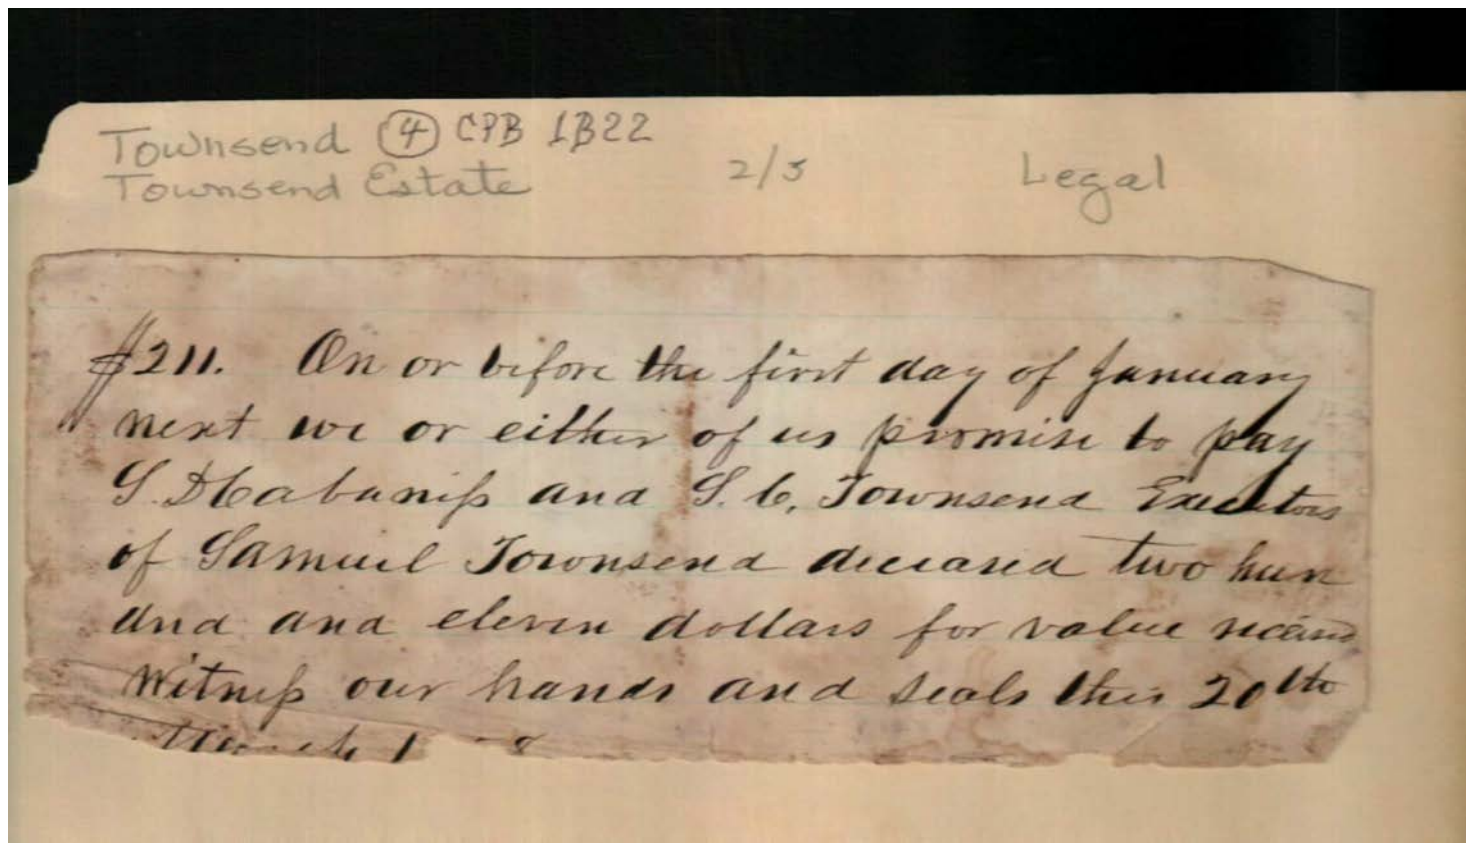 Townsend ④ CPB 1B22
Townsend Estate 2/3 Legal
$211. On or before the first day of January
next we or either of us promise to pay
S. D Cabaniss and S. C. Townsend Executors
of Samuel Townsend deceased two hun
dred and eleven dollars for value received
Witness our hands and seals this 20th
March 1 8